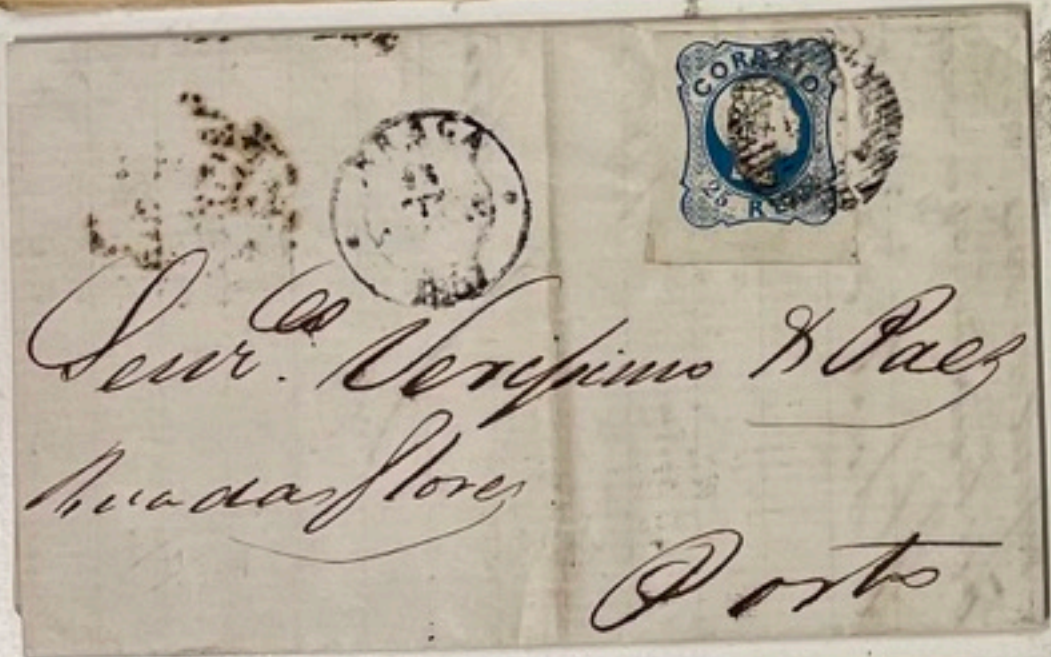 BRAGA
CORREIO
25 R
Senr.es Veríssimo & Paes
Rua das Flores
Porto